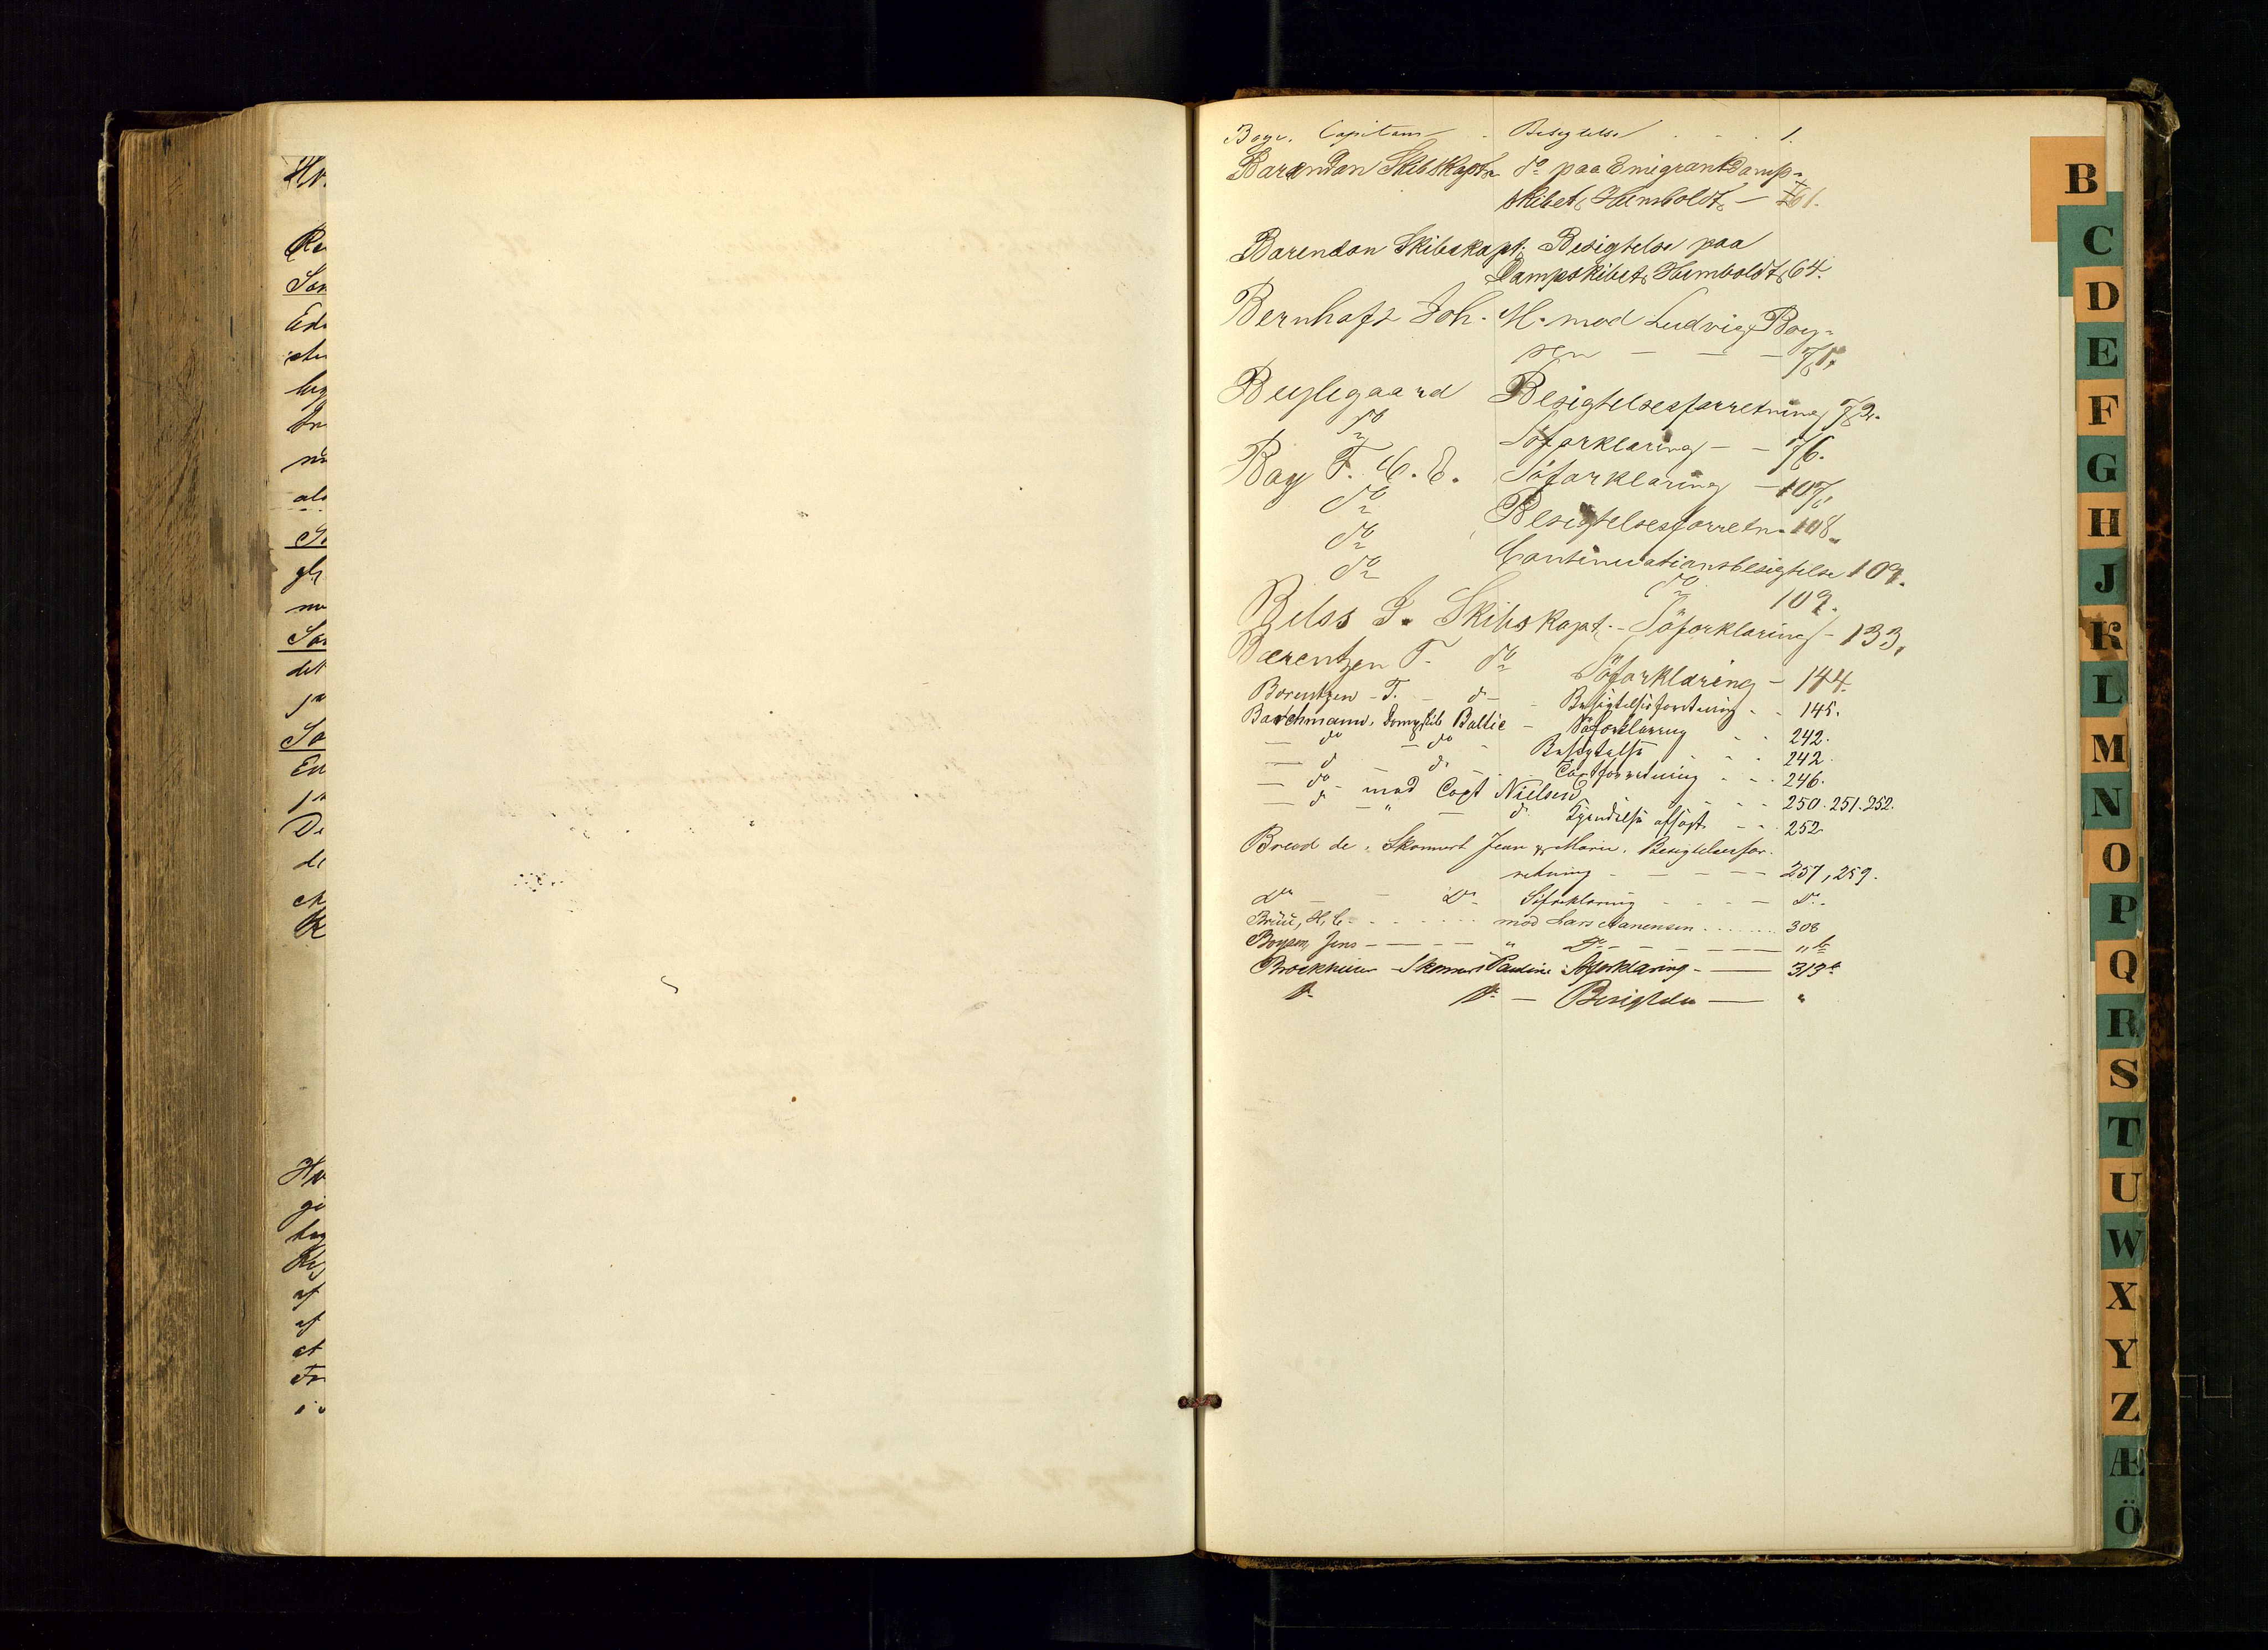 Hv.
Søn
det
En
de
K
Hv
gi
af
af
at
Boye. Capitain - Besigtelse 1.
Barendson Skibskapt. do paa Emigrantdamp-
skibet Humboldt - 61.
Barendson Skibskapt. Besigtelse paa
Dampskibet Humboldt 64.
Bernhoft Joh. M. mod Ludvig Boy-
sen - - - 71.
Beylegaard Besigtelsesforretning 72.
do Søforklaring - - 76.
Bay F. C. E. Søforklaring - 107.
do Besigtelsesforretn. 108.
do Continuationsbesigtelse 109.
do do 109.
Belss J. Skibskapt. - Søforklaring - 133.
Bærentzen T. do Søforklaring - 144.
Borentzen - T. - do - Besigtelsesforretning - - 145.
Barchmann, Dampskib Baltic - Søforklaring - - 242.
- do - do - Besigtelse - - 242.
- d - d. - Taxtforretning - - - 246.
- do - mod Capt Nielsen - - - 250. 251. 252.
- d - " - d. Kjendelse afsagt - - 252
Breod de, Skonnert Jean & Marie. Besigtelsesfor-
retning - - - - - 257, 259.
Do - - Do Søforklaring - - - - Do -
Bruu, H. C. - - - - - mod Lars Aanensen ....... 308
Boysen, Jens - - - - " Do - - - - - " b
Brockhuus - Skonnert Pauline Søforklaring - - 313b
Do Do - Besigtelse - "
B
C
D
E
F
G
H
J
K
L
M
N
O
P
Q
R
S
T
U
W
X
Y
Z
Æ
Ö